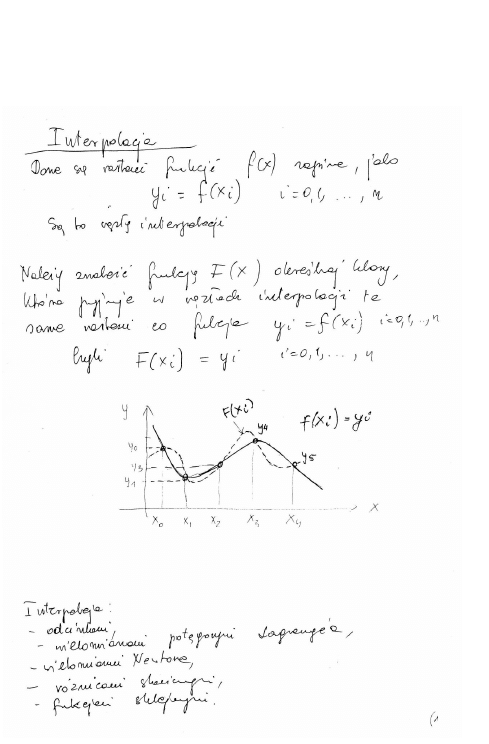 Interpolacja
Dane są wartości funkcji f(x) zapisane, jako
yi = f(xi) i=0,1, ..., n
Są to węzły interpolacji
Należy znaleźć funkcję F(x) określonej klasy,
która przyjmuje w węzłach interpolacji te
same wartości co funkcja yi = f(xi) i=0,1,..,n
czyli F(xi) = yi i=0,1,..., n
y F(xi) y4 f(xi) = yi
y0
y3 y5
y1
x0 x1 x2 x3 x4 x
Interpolacja:
- odcinkami,
- wielomianami potęgowymi Lagrange'a,
- wielomianami Newtona,
- różnicami skończonymi,
- funkcjami sklejanymi.